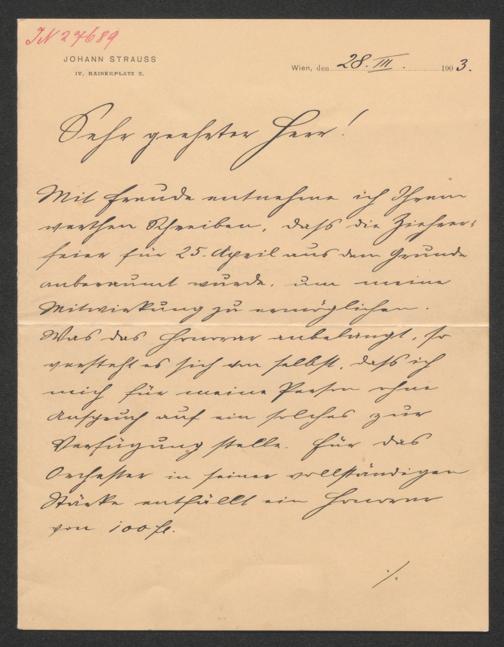 IN 27689
JOHANN STRAUSS
IV, RAINERPLATZ 2.
Wien, den 28. III. 1903.
Sehr geehrter Herr!
Mit Freude entnehme ich Ihrem
werthen Schreiben, daſs die Ziehrer-
feier für 25. April aus dem Grunde
anberaumt wurde, um meine
Mitwirkung zu ermöglichen.
Was das Honorar anbelangt, so
versteht es sich von selbst, daſs ich
mich für meine Person ohne
Anspruch auf ein solches zur
Verfügung stelle. Für das
Orchester in seiner vollständigen
Stärke entfällt ein Honorar
von 100 fl.
./.